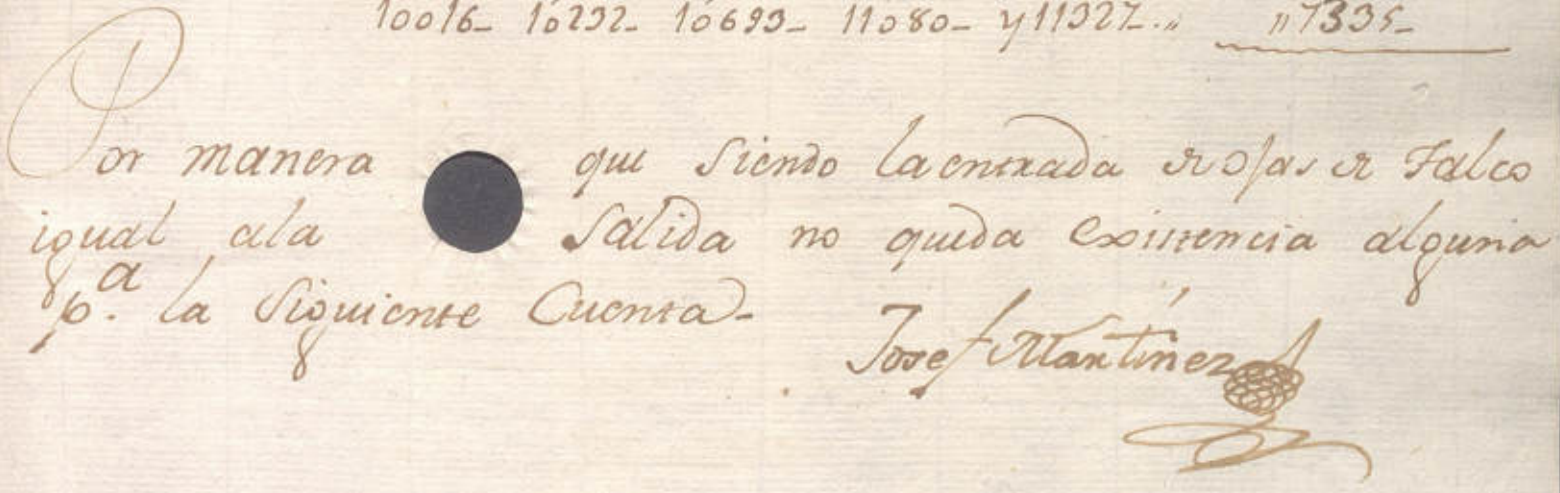 10016- 10232- 10693- 11080- y 11327.,, ,,7335-
Por manera que siendo la entrada de ojas de Talco
igual ala Salida no queda existencia alguna
p.a la siguiente Cuenta-
Josef Martinez